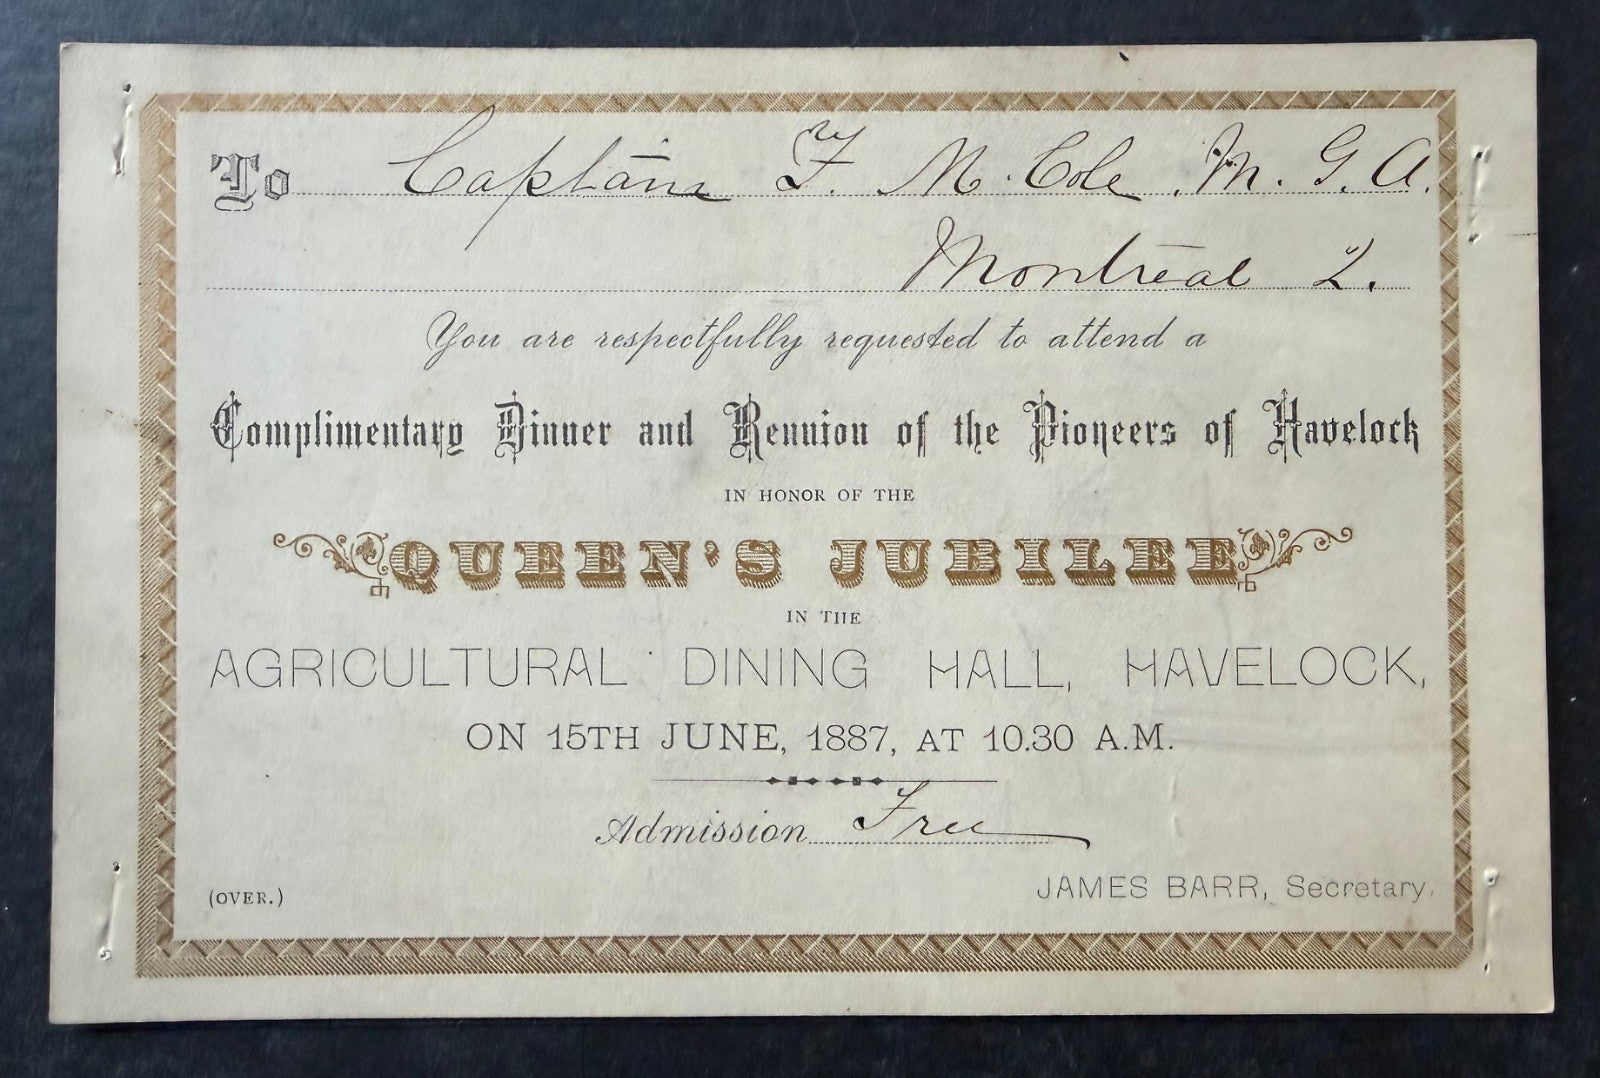 To Captain F. M. Cole. M. G. A.
Montreal 2.
You are respectfully requested to attend a
Complimentary Dinner and Reunion of the Pioneers of Havelock
IN HONOR OF THE
QUEEN'S JUBILEE
IN THE
AGRICULTURAL DINING HALL, HAVELOCK,
ON 15TH JUNE, 1887, AT 10.30 A.M.
Admission Free
(OVER.)
JAMES BARR, Secretary.